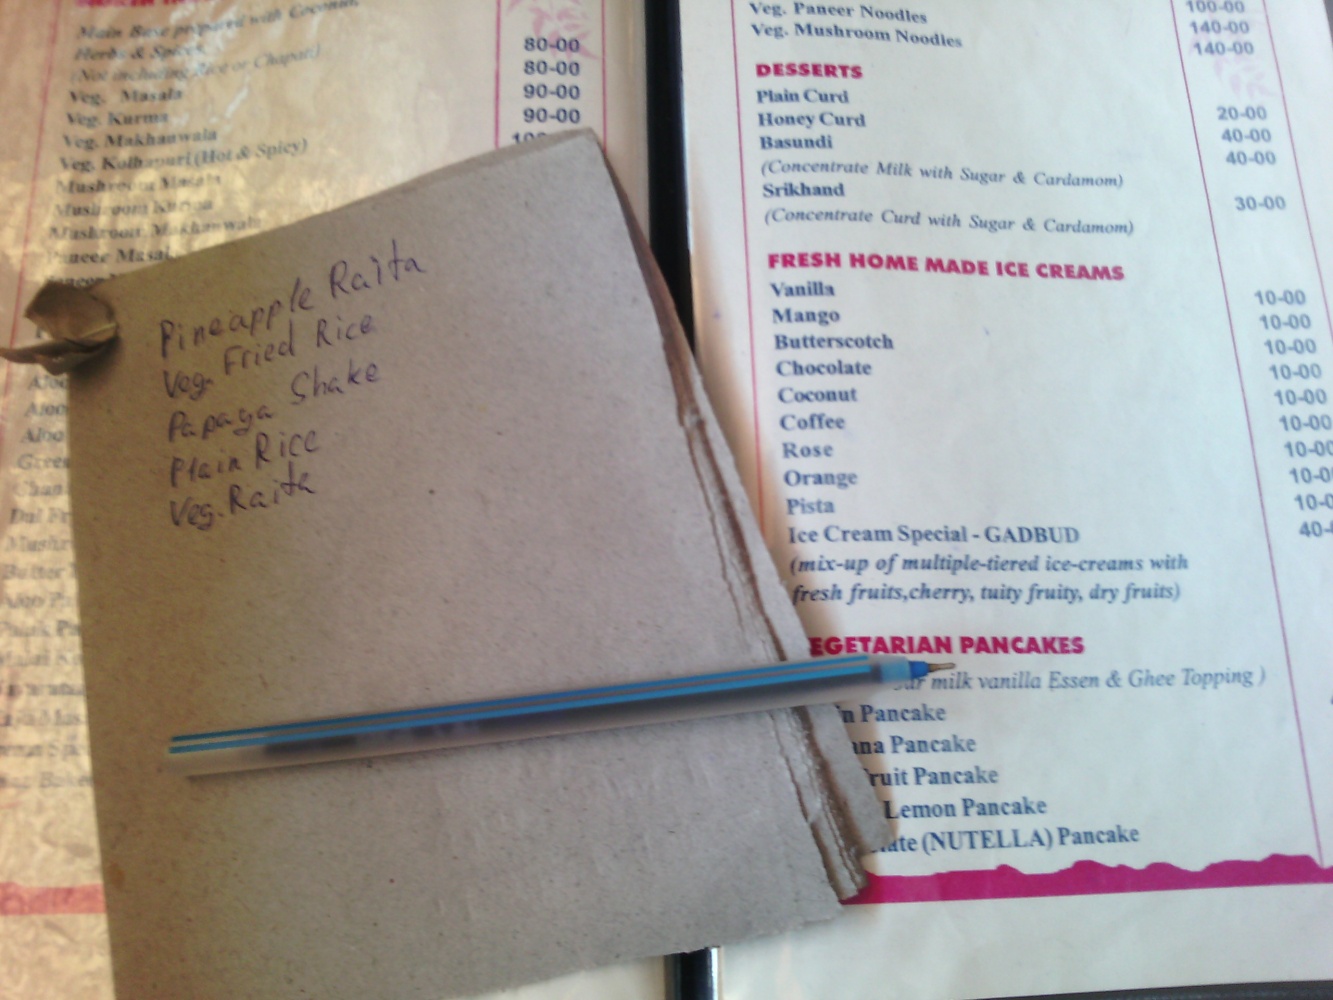 Main Base prepared with Coconut,
Herbs & Spices
(Not including Rice or Chapati)
Veg. Masala
Veg. Kurma
Veg. Makhanwala
Veg. Kolhapuri (Hot & Spicy)
Mushroom Masala
Mushroom Kurma
Mushroom Makhanwala
Paneer Masal
80-00
80-00
90-00
90-00
Pineapple Raita
Veg. Fried Rice
Papaya Shake
Plain Rice
Veg. Raita
Veg. Paneer Noodles
Veg. Mushroom Noodles
100-00
140-00
140-00
DESSERTS
Plain Curd 20-00
Honey Curd 40-00
Basundi 40-00
(Concentrate Milk with Sugar & Cardamom)
Srikhand 30-00
(Concentrate Curd with Sugar & Cardamom)
FRESH HOME MADE ICE CREAMS
Vanilla 10-00
Mango 10-00
Butterscotch 10-00
Chocolate 10-00
Coconut 10-00
Coffee 10-00
Rose 10-00
Orange 10-0
Pista 10-0
Ice Cream Special - GADBUD 40-
(mix-up of multiple-tiered ice-creams with
fresh fruits,cherry, tuity fruity, dry fruits)
EGETARIAN PANCAKES
milk vanilla Essen & Ghee Topping )
n Pancake
ana Pancake
ruit Pancake
Lemon Pancake
late (NUTELLA) Pancake